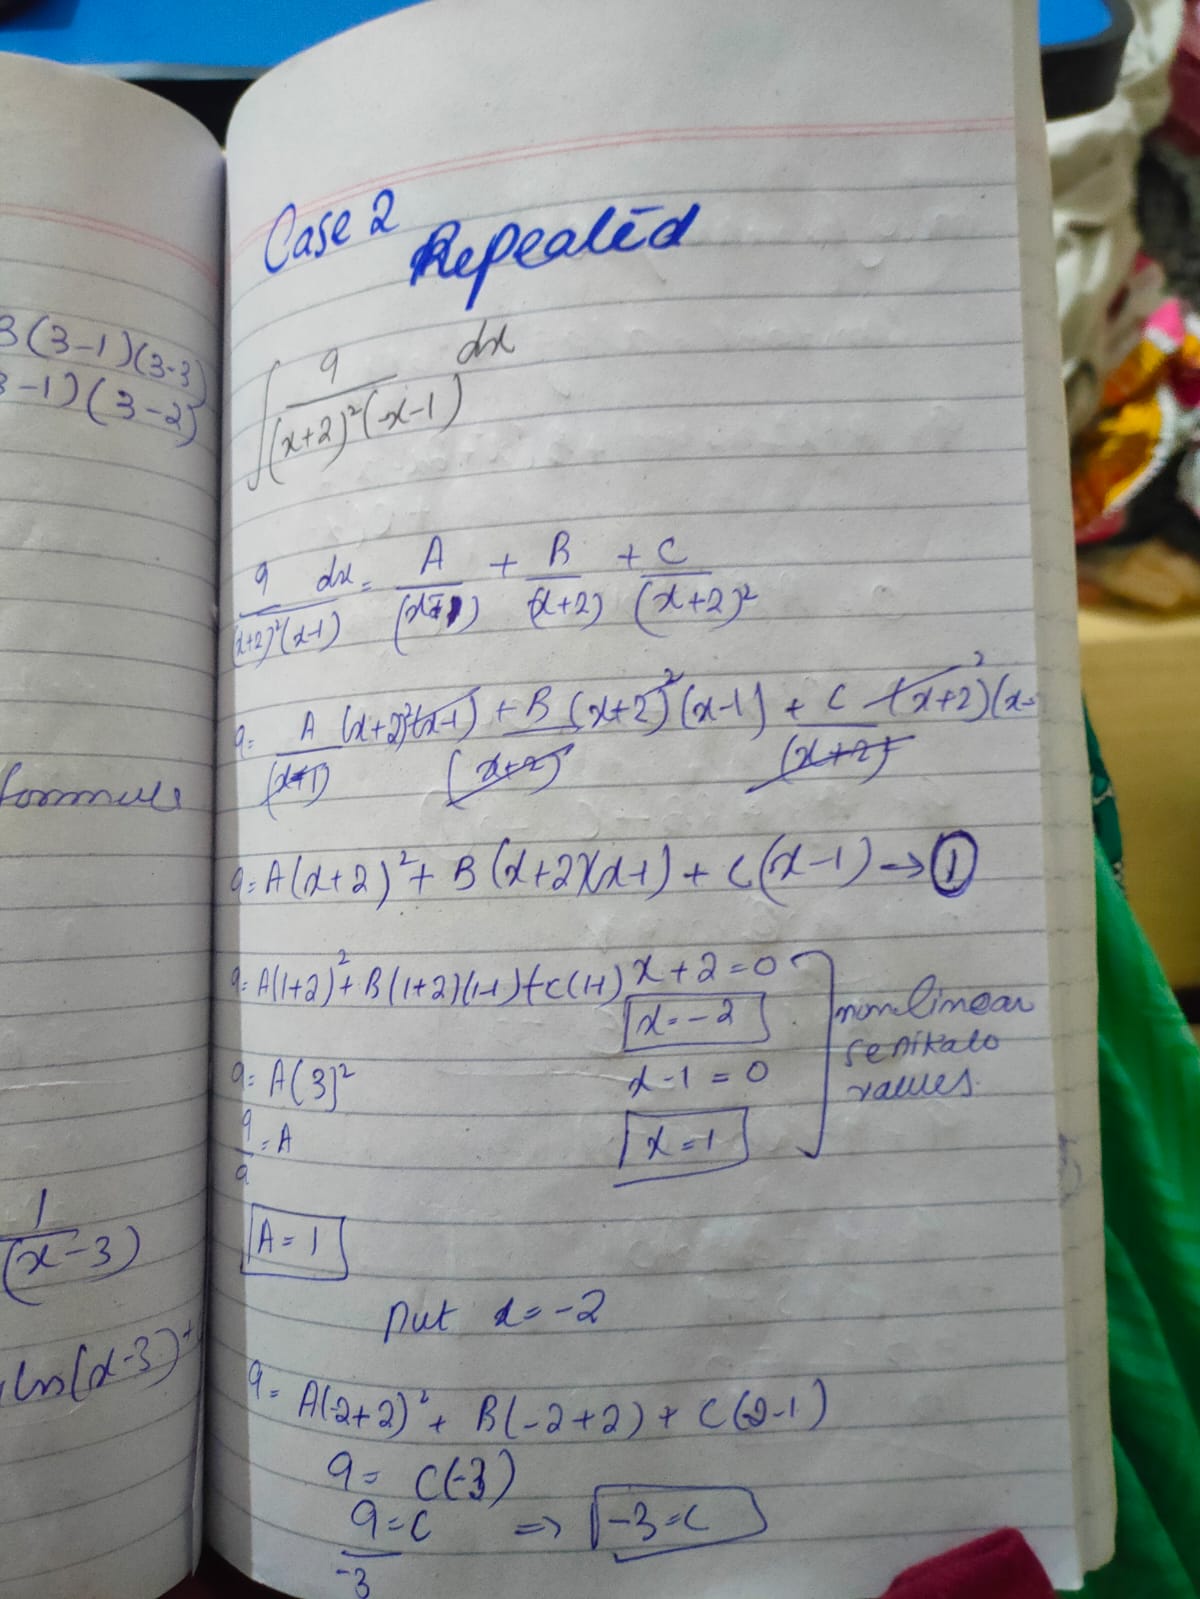 3(3-1)(3-3)
3-1)(3-2)
formule
1
(x-3)
ln(x-3)+
Case 2 Repeated
∫ 9 dx
(x+2)²(x-1)
9 dx = A + B + C
(x+2)²(x-1) (x-1) (x+2) (x+2)²
9= A (x+2)²(x-1) + B (x+2)²(x-1) + C (x+2)²(x-
(x-1) (x+2) (x+2)
9= A(x+2)² + B(x+2)(x-1) + C(x-1) → ①
9= A(1+2)² + B(1+2)(1-1)+C(1-1) x+2=0
x=-2
9= A(3)² x-1=0
9 = A x=1
9
non linear
se nikalo
values.
A=1
put x=-2
9= A(-2+2)² + B(-2+2) + C(-2-1)
9= C(-3)
9=C ⇒ -3=C
-3